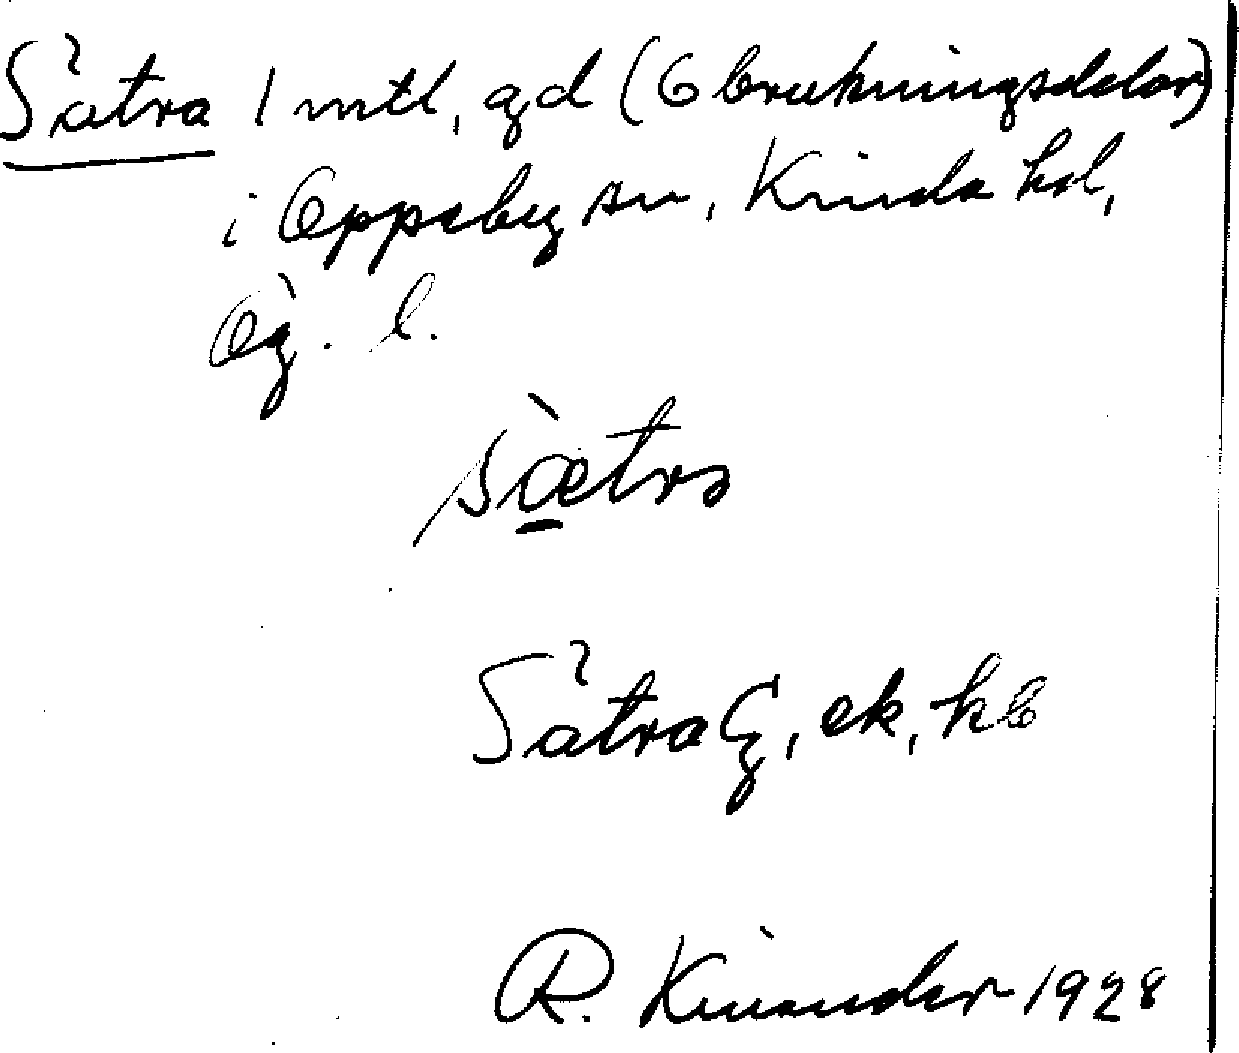 Sätra 1 mtl, gd (6 brukningsdelar)
i Oppeby sn, Kinda hd,
Ög. l.
sæ̀tra
Sätra G, ek, kb
R. Kinander 1928